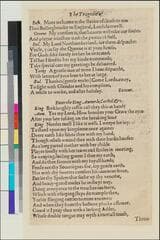 The Tragedie of
Bush. More welcome is the stroke of death to me
Then Bullingbrooke to England, Lords farewell.
Greene. My comfort is, that heauen will take our soules
And plague iniustice with the paines of hell.
Bul. My Lord Northumberland, see them dispatcht
Vncle, you say the Queene is at your house,
For Gods sake fairely let her be intreated,
Tell her I send to her my kind commends,
Take speciall care my greetings be deliuered.
Yorke A gentleman of mine I haue dispatcht
With letters of your loue to her at large.
Bul. Thankes (gentle vncle) Come Lords, away,
To fight with Glendor and his complices,
A while to worke, and after holiday. Exeunt.
Enter the King, Aumerle, Carleil, &c.
King. Barkloughly castle call they this at hand?
Aum. Yea my Lord, How brookes your Grace the ayre
After your late tossing on the breaking seas?
King. Needs must I like it well, I weepe for ioy
To stand vpon my kingdome once againe:
Deere earth I do salute thee with my hand,
Though rebels wound thee with their horses hoofes
As a long parted mother with her childe
Playes fondly with her teares and smiles in meeting,
So weeping, smiling, greete I thee my earth,
And do thee fauours with my royall hands.
Feede not thy Soueraignes foe, my gentle earth,
Nor with thy sweetes comfort his rauenous sence,
But let thy Spiders that sucke vp thy venome,
And heauy-gated toades lie in their way,
Doing annoyance to the treacherous feete,
Which with vsurping steps do trample thee,
Yeeld stinging nettles to mine enemies:
And when they from thy bosome plucke a flower,
Guard it I pray thee with a lurking Adder,
Whose double tongue may with a mortall touch,
Throw